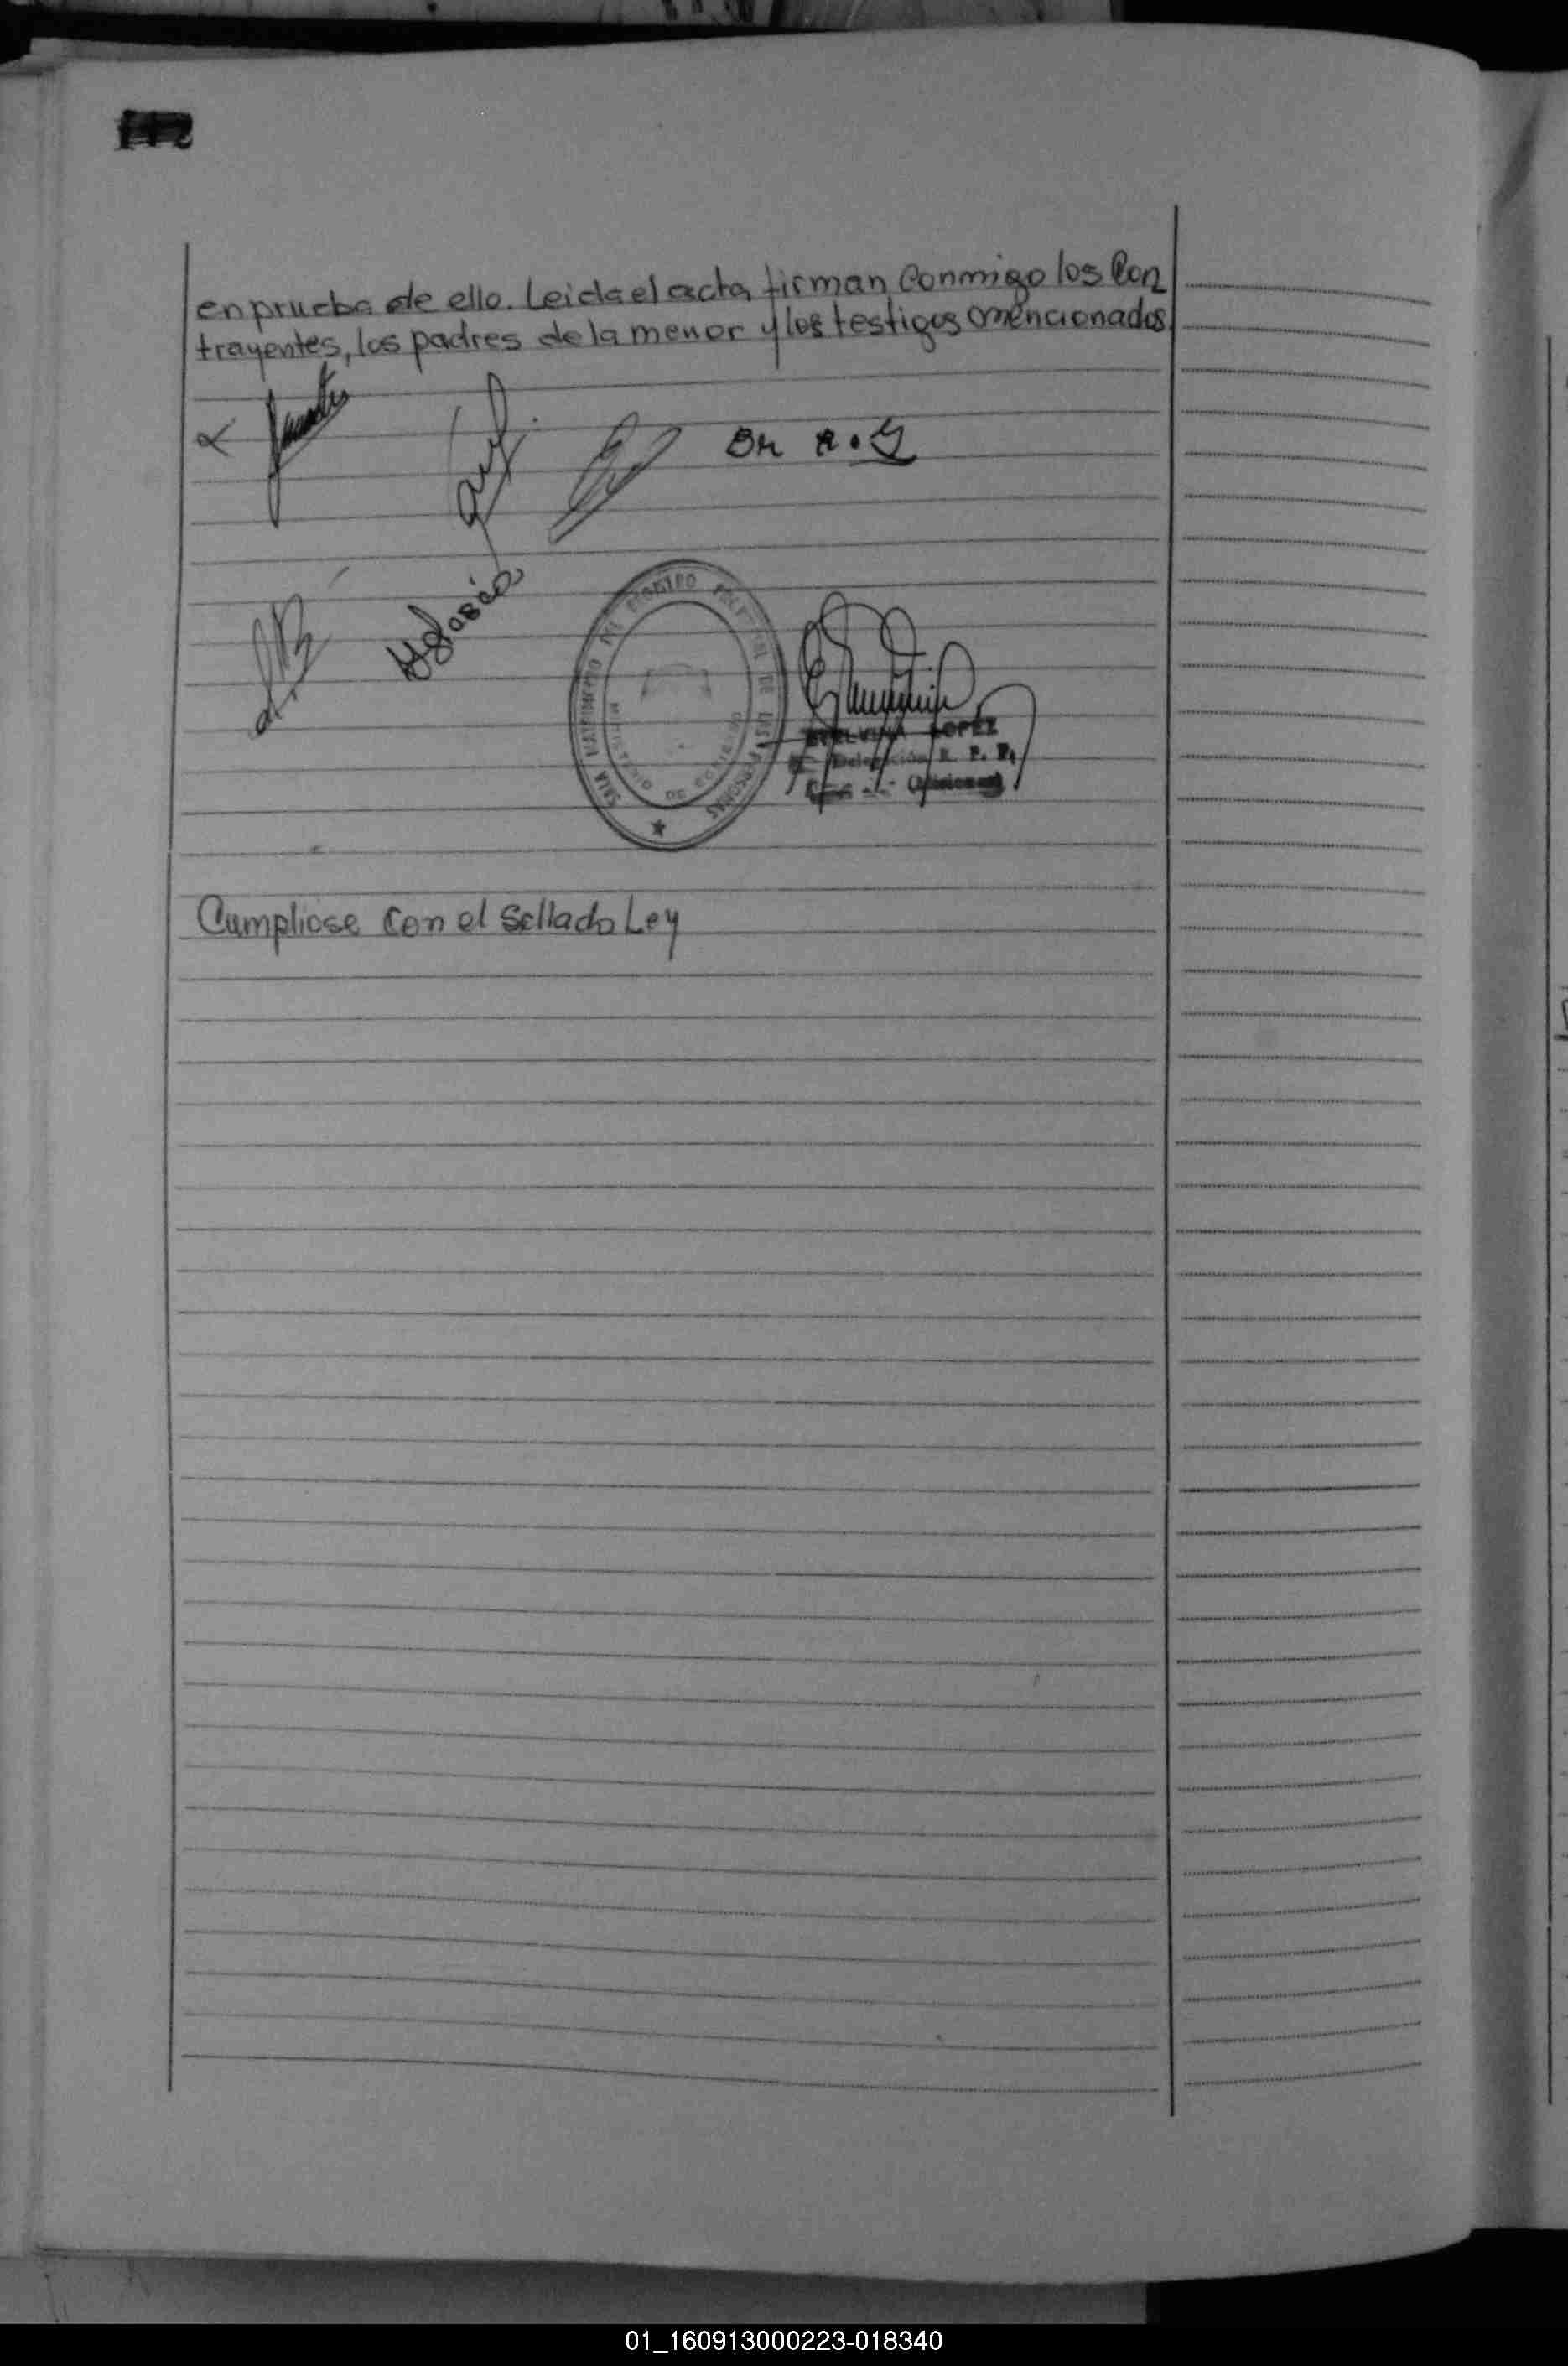 en prueba de ello. Leida el acta, firman conmigo los Con
trayentes, los padres de la menor y los testigos mencionados
Cumpliose con el Sellado Ley
SALA MATRIMONIO DEL REGISTRO PROVINCIAL DE LAS PERSONAS
MINISTERIO DE GOBIERNO
LOPEZ
Delegación R. P. P.
(Misiones)
01_160913000223-018340